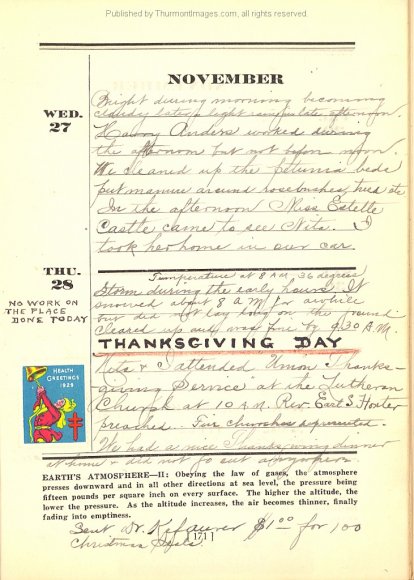 Published by ThurmontImages.com, all rights reserved.
NOVEMBER
WED.
27
Bright during morning becoming
cloudy later, light rain late afternoon.
Harry Anders worked during
the afternoon but not before noon.
We cleaned up the petunia beds
put manure around rosebushes,
In the afternoon Miss Estelle
Castle came to see Nita. I
took her home in our car.
THU.
28
NO WORK ON
THE PLACE
DONE TODAY
Temperature at 8 A.M. 36 degrees
Storm during the early hours. It
snowed about 8 A.M. for awhile
but did not lay long on the ground
cleared up and was fine by 9.30 A.M.
THANKSGIVING DAY
HEALTH
GREETINGS
1929
Nita & I attended Union Thanks-
giving Service at the Lutheran
Church at 10 A.M. Rev. Earl S.
preached. churches represented.
We had a nice Thanksgiving dinner
at home & did not go out anywhere.
EARTH'S ATMOSPHERE—II: Obeying the law of gases, the atmosphere
presses downward and in all other directions at sea level, the pressure being
fifteen pounds per square inch on every surface. The higher the altitude, the
lower the pressure. As the altitude increases, the air becomes thinner, finally
fading into emptiness.
Sent Dr. Kefauver $1.00 for 100
Christmas Seals.
[171]